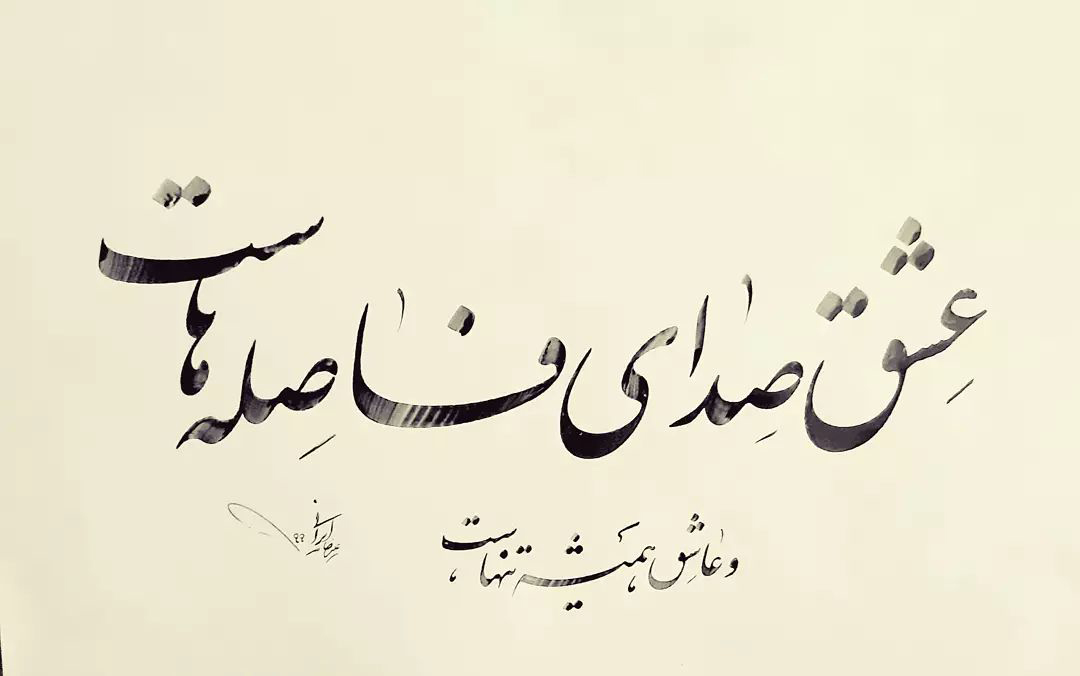 عِشق صِدای فاصِله‌هاست
و عاشِق همیشه تنهاست